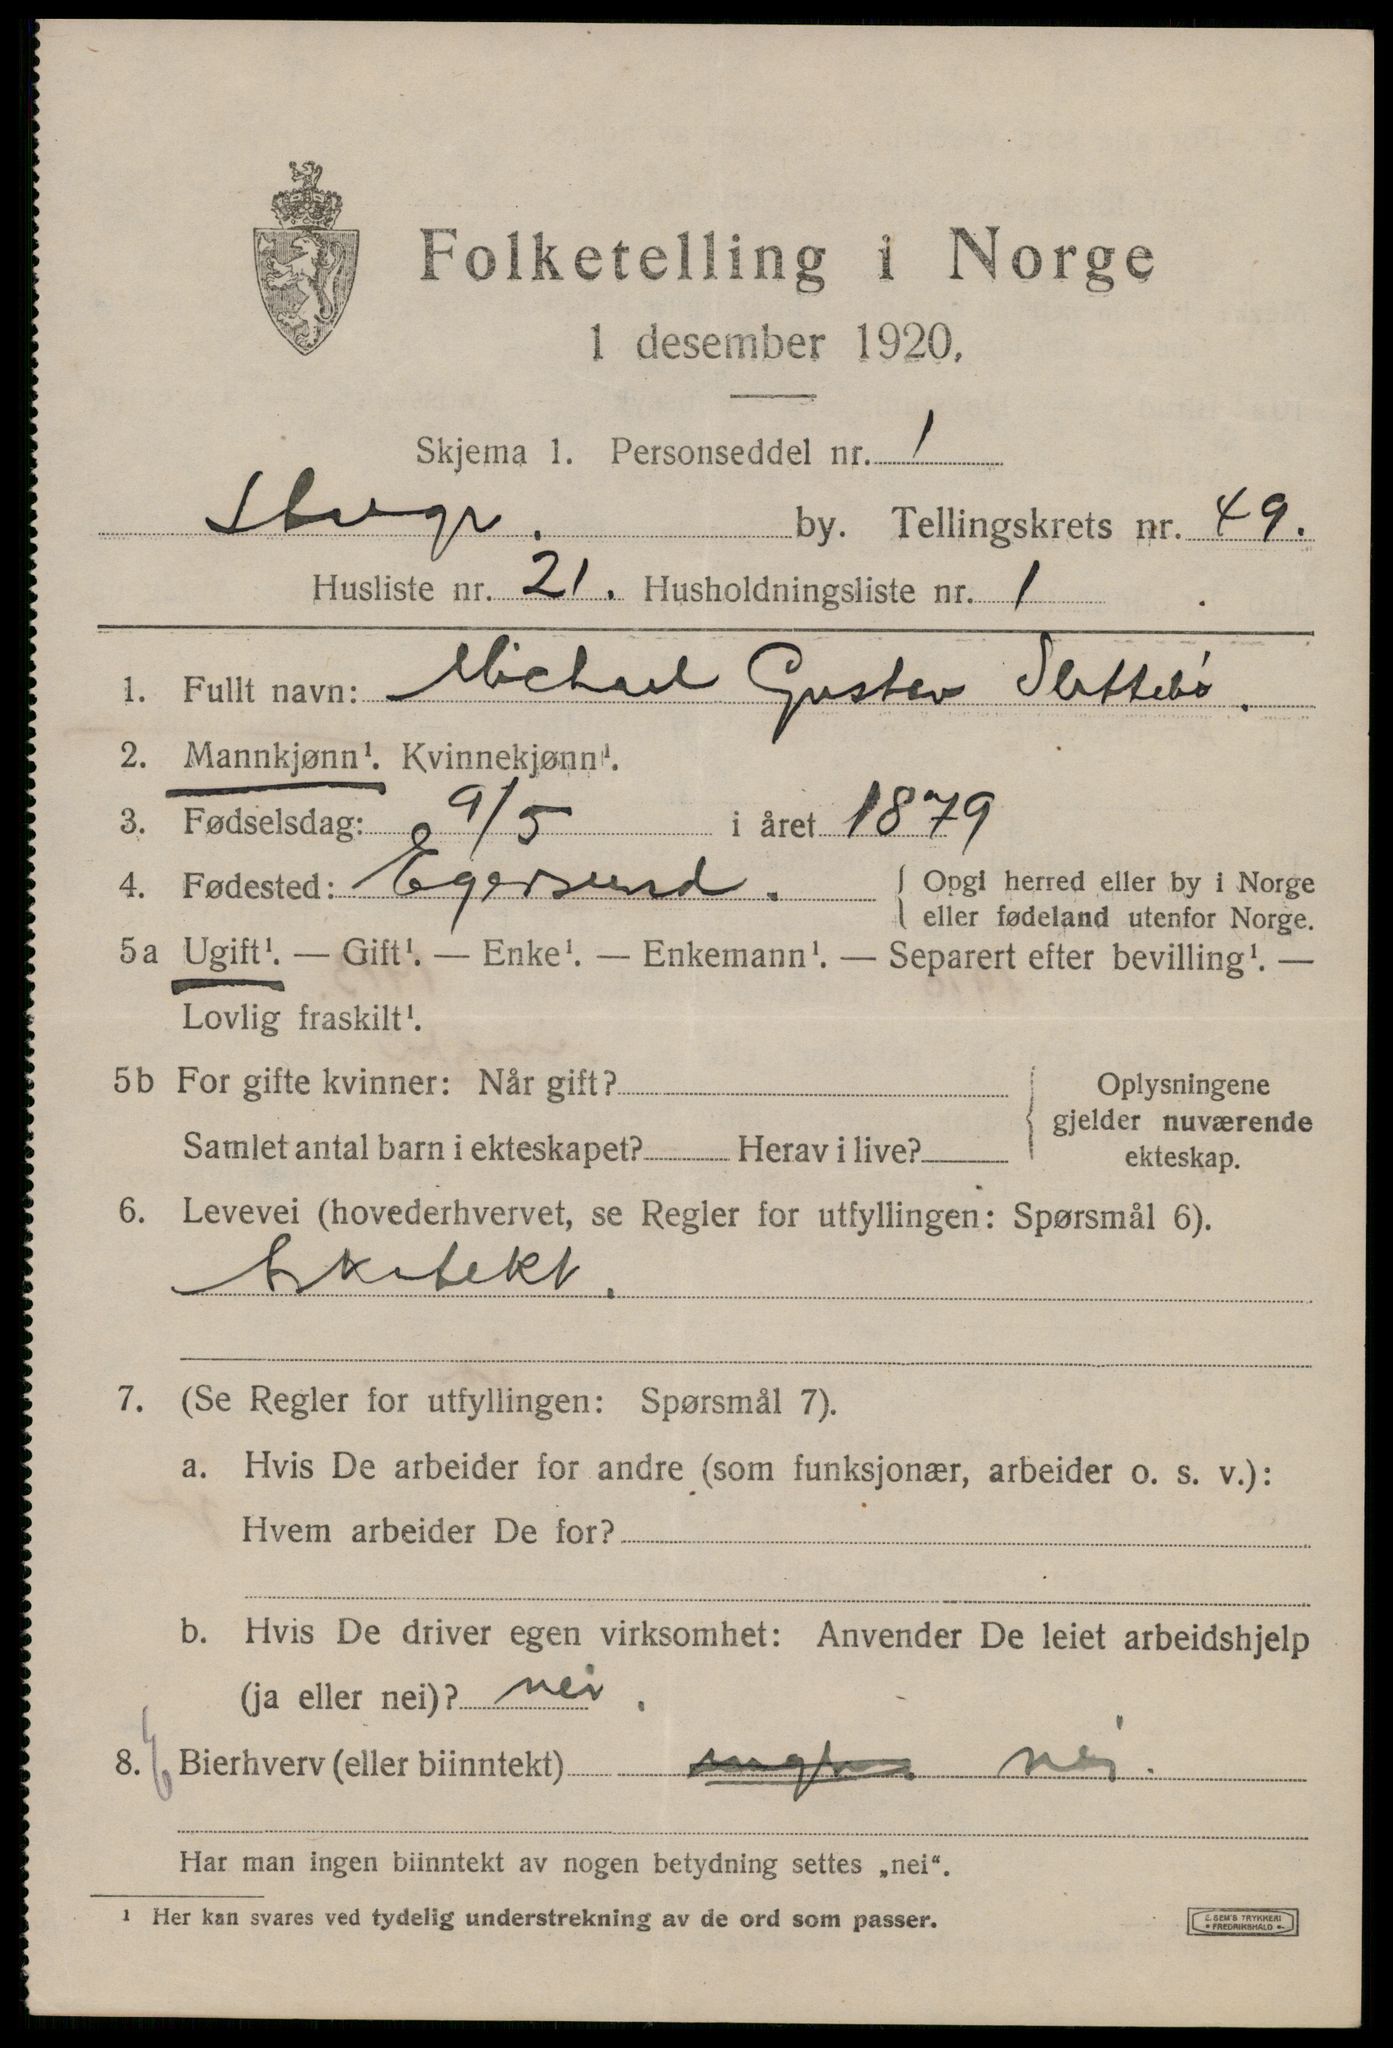 Folketelling i Norge
1 desember 1920.
Skjema 1. Personseddel nr. 1
Stvgr. by. Tellingskrets nr. 49.
Husliste nr. 21. Husholdningsliste nr. 1
1. Fullt navn: Michael Gustav Slettebø.
2. Mannkjønn¹. Kvinnekjønn¹.
3. Fødselsdag: 9/5 i året 1879
4. Fødested: Egersund. { Opgi herred eller by i Norge
eller fødeland utenfor Norge.
5a Ugift¹. — Gift¹. — Enke¹. — Enkemann¹. — Separert efter bevilling¹. —
Lovlig fraskilt¹.
5b For gifte kvinner: Når gift?
Samlet antal barn i ekteskapet? Herav i live?
Oplysningene
gjelder nuværende
ekteskap.
6. Levevei (hovederhvervet, se Regler for utfyllingen: Spørsmål 6).
Arkitekt.
7. (Se Regler for utfyllingen: Spørsmål 7).
a. Hvis De arbeider for andre (som funksjonær, arbeider o. s. v.):
Hvem arbeider De for?
b. Hvis De driver egen virksomhet: Anvender De leiet arbeidshjelp
(ja eller nei)? nei.
8. Bierhverv (eller biinntekt) nei.
Har man ingen biinntekt av nogen betydning settes „nei“.
¹ Her kan svares ved tydelig understrekning av de ord som passer.
E. SEM'S TRYKKERI
FREDRIKSHALD